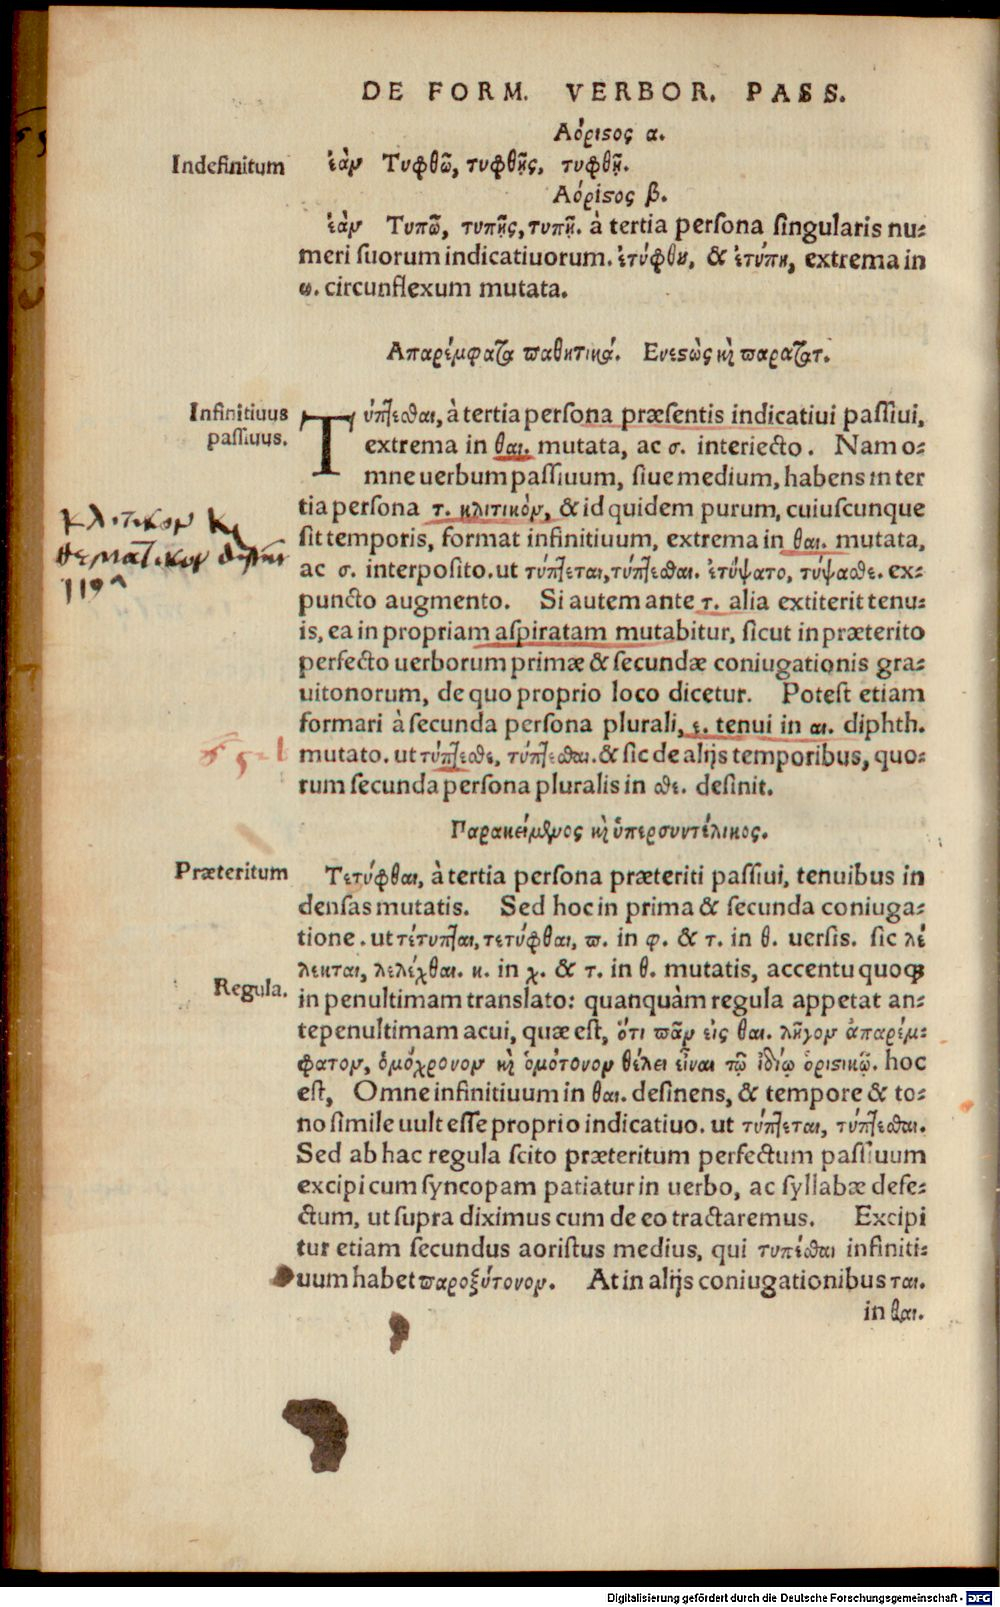 DE FORM. VERBOR. PASS.
Αόριςος α.
Indefinitum
ἐὰν Τυφθῶ, τυφθῇς, τυφθῇ.
Αόριςος β.
ἐὰν Τυπῶ, τυπῇς, τυπῇ. à tertia perſona ſingularis nu-
meri ſuorum indicatiuorum. ἐτύφθη, & ἐτύπη, extrema in
ω. circunflexum mutata.
Απαρέμφατα παθητικά. Ενεςὼς κὶ παρατατ.
Infinitiuus
paſſiuus.
Τύπτεσθαι, à tertia perſona præſentis indicatiui paſſiui,
extrema in θαι. mutata, ac σ. interiecto. Nam o-
mne uerbum paſſiuum, ſiue medium, habens in ter
tia perſona τ. κλιτικὸν, & id quidem purum, cuiuſcunque
ſit temporis, format infinitiuum, extrema in θαι. mutata,
ac σ. interpoſito. ut τύπτεται, τύπτεσθαι. ἐτύψατο, τύψασθε. ex-
puncto augmento. Si autem ante τ. alia extiterit tenu-
is, ea in propriam aſpiratam mutabitur, ſicut in præterito
perfecto uerborum primæ & ſecundæ coniugationis gra-
uitonorum, de quo proprio loco dicetur. Poteſt etiam
formari à ſecunda perſona plurali, ε. tenui in αι. diphth.
mutato. ut τύπτεσθε, τύπτεσθαι. & ſic de alijs temporibus, quo-
rum ſecunda perſona pluralis in σθε. deſinit.
κλιτικον κὶ
θεματικον
119
Παρακείμενος κὶ ὑπερσυντέλικος.
Præteritum
Τετύφθαι, à tertia perſona præteriti paſſiui, tenuibus in
denſas mutatis. Sed hoc in prima & ſecunda coniuga-
tione. ut τέτυπται, τετύφθαι, π. in φ. & τ. in θ. uerſis. ſic λέ
λεκται, λελέχθαι. κ. in χ. & τ. in θ. mutatis, accentu quoq;
Regula.
in penultimam translato: quanquàm regula appetat an-
tepenultimam acui, quæ eſt, ὅτι πᾶν εἰς θαι. λῆγον ἀπαρέμ-
φατον, ὁμόχρονον κὶ ὁμότονον θέλει εἶναι τῷ ἰδίῳ ὁριςικῷ. hoc
eſt, Omne infinitiuum in θαι. deſinens, & tempore & to-
no ſimile uult eſſe proprio indicatiuo. ut τύπτεται, τύπτεσθαι.
Sed ab hac regula ſcito præteritum perfectum paſſiuum
excipi cum ſyncopam patiatur in uerbo, ac ſyllabæ defe-
ctum, ut ſupra diximus cum de eo tractaremus. Excipi
tur etiam ſecundus aoriſtus medius, qui τυπέσθαι infiniti-
uum habet παροξύτονον. At in alijs coniugationibus ται.
in θαι.
Digitalisierung gefördert durch die Deutsche Forschungsgemeinschaft - DFG